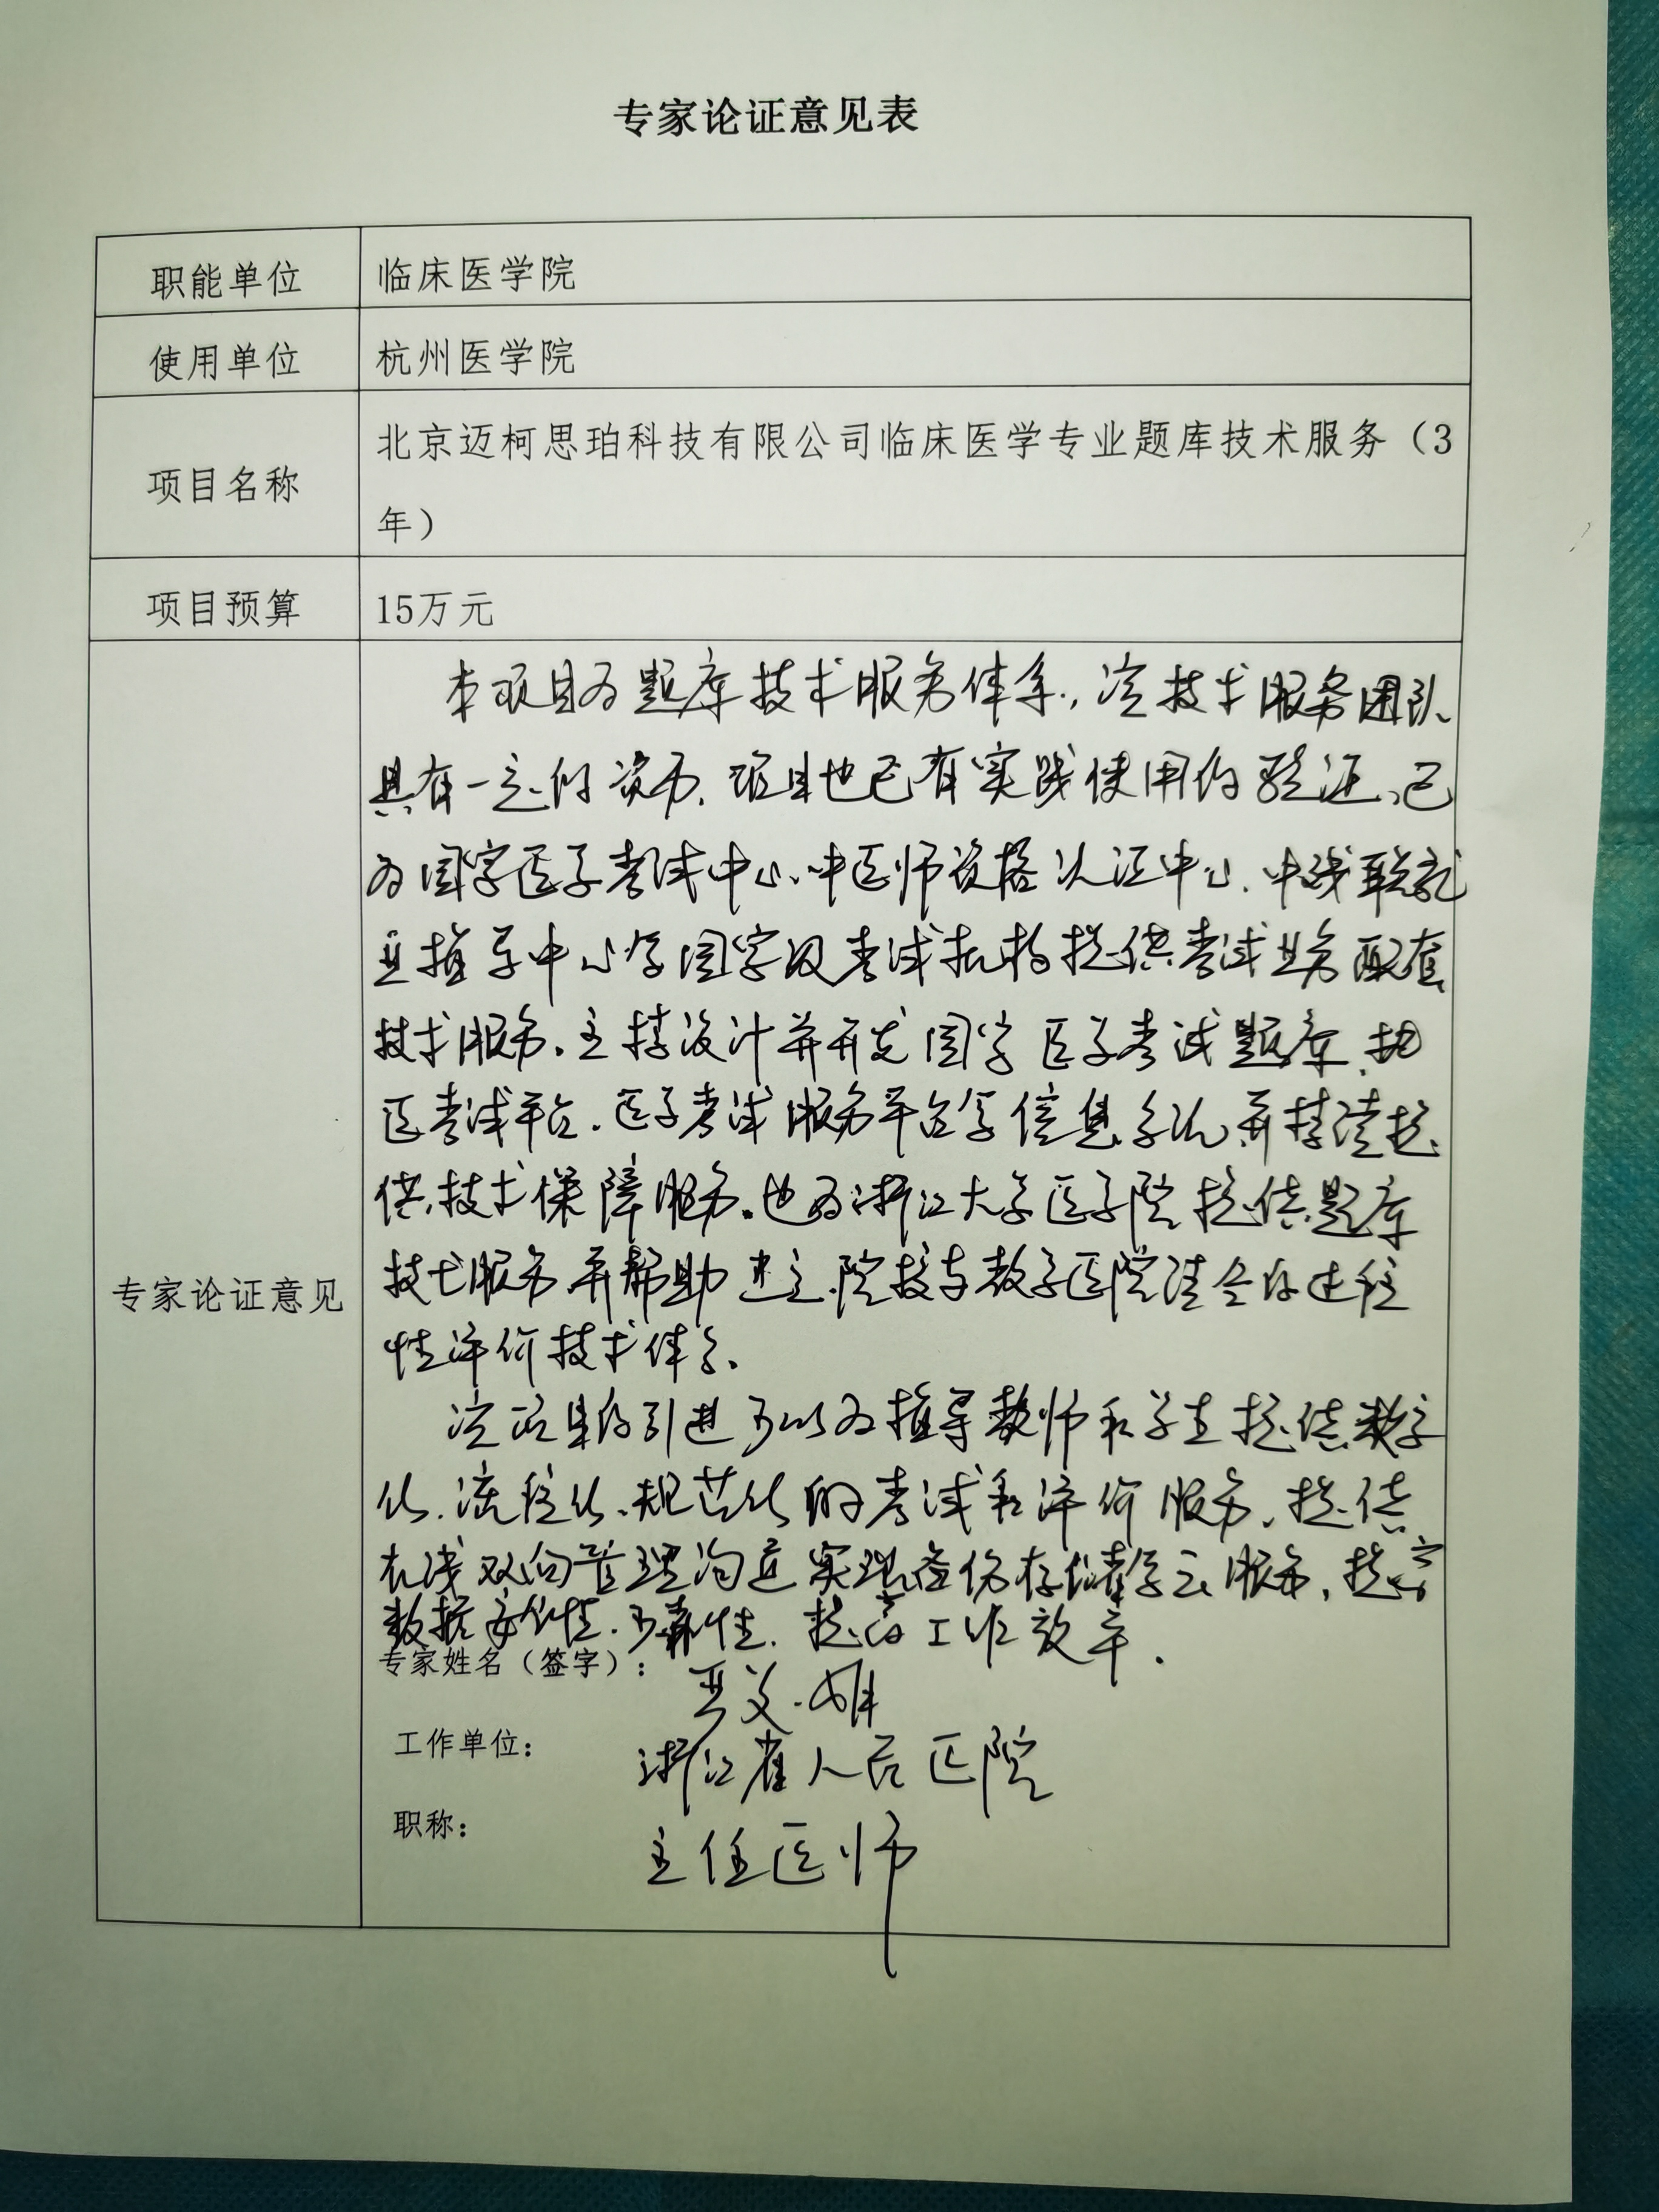 专家论证意见表
职能单位
临床医学院
使用单位
杭州医学院
项目名称
北京迈柯思珀科技有限公司临床医学专业题库技术服务（3
年）
项目预算
15万元
专家论证意见
本项目为题库技术服务体系，该技术服务团队
具有一定的资历，项目也已有实践使用的验证，已
为国家医学考试中心、中医师资格认证中心、
中心等国家级考试机构提供考试业务配套
技术服务。主持设计并开发国家医学考试题库、
医考试平台、医学考试服务平台等信息系统，并持续提
供技术保障服务。也为浙江大学医学院提供题库
技术服务，并帮助建立院校与教学医院结合的过程
性评价技术体系。
该项目的引进可以为指导教师和学生提供数字
化、流程化、规范化的考试和评价服务，提供
在线双向管理沟通，实现备份存储等云服务，提高
数据安全性、可靠性，提高工作效率。
专家姓名（签字）：
工作单位：
浙江省人民医院
职称：
主任医师